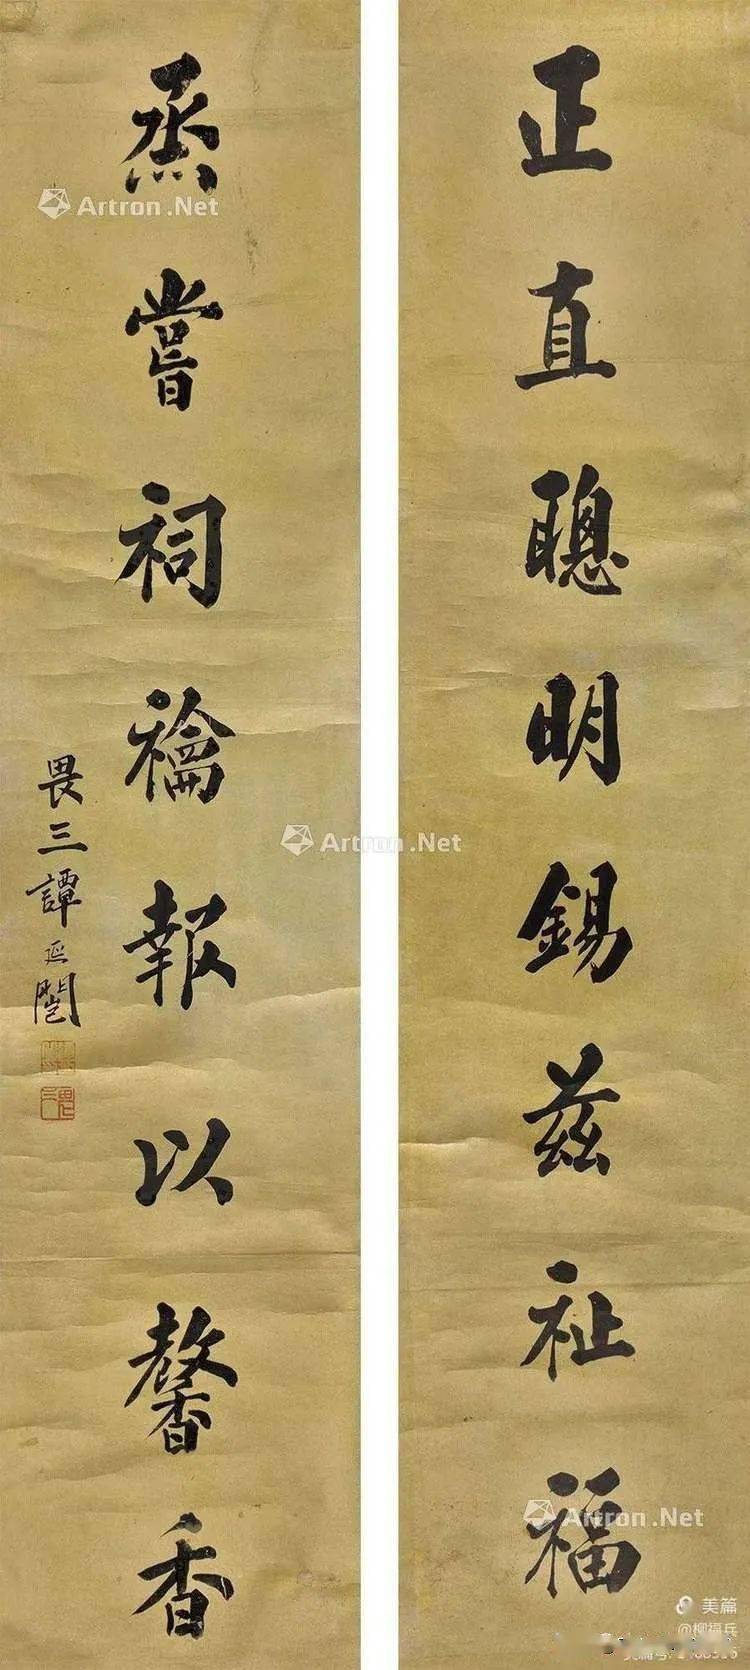 正直聰明錫兹祉福
烝嘗祠禴報以馨香
畏三譚延闓
Artron.Net
Artron.Net
Artron.Net
美篇
@柳福兵